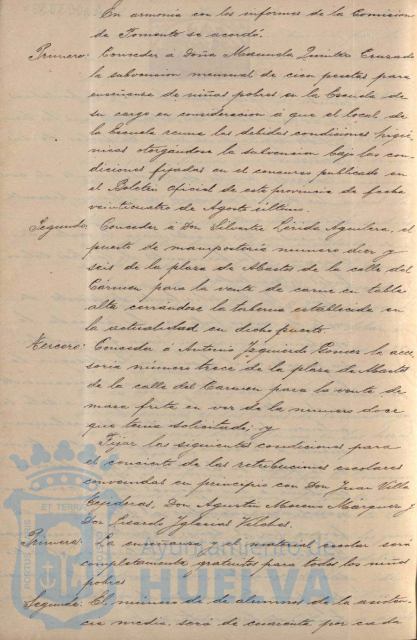 En armonía con los informes de la Comision
de Fomento se acordó.
Primero: Conceder á Doña Manuela Quintero Cruzado
la subvencion mensual de cien pesetas para
enseñanza de niñas pobres en la Escuela de
su cargo en consideracion á que el local de
la Escuela reune las debidas condiciones higie-
nicas otorgándose la subvencion bajo las con-
diciones fijadas en el concurso publicado en
el Boletin oficial de esta provincia de fecha
veinticuatro de Agosto último.
Segundo: Conceder á Don Silvestre Lérida Aguilera, el
puesto de mamposteria número diez y
seis de la plaza de Abastos de la calle del
Cármen para la venta de carne en tabla
alta cerrándose la taberna establecida en
la actualidad en dicho puesto.
Tercero: Conceder á Antonio Izquierdo Gomez la acce-
soria número trece de la plaza de Abastos
de la calle del Carmen para la venta de
masa frita en vez de la numero doce
que tenia solicitada; y
Fijar las siguientes condiciones para
el concierto de las retribuciones escolares
convenidas en principio con Don Juan Villa
Don Agustin Moreno Márquez y
Don Ricardo Iglesias
Primera: La enseñanza y el material escolar será
completamente gratuitos para todos los niños
pobres
Segunda: El número de alumnos de la asisten-
cia media, será de cincuenta por cada
ET TERRA
Ayuntamiento de
HUELVA